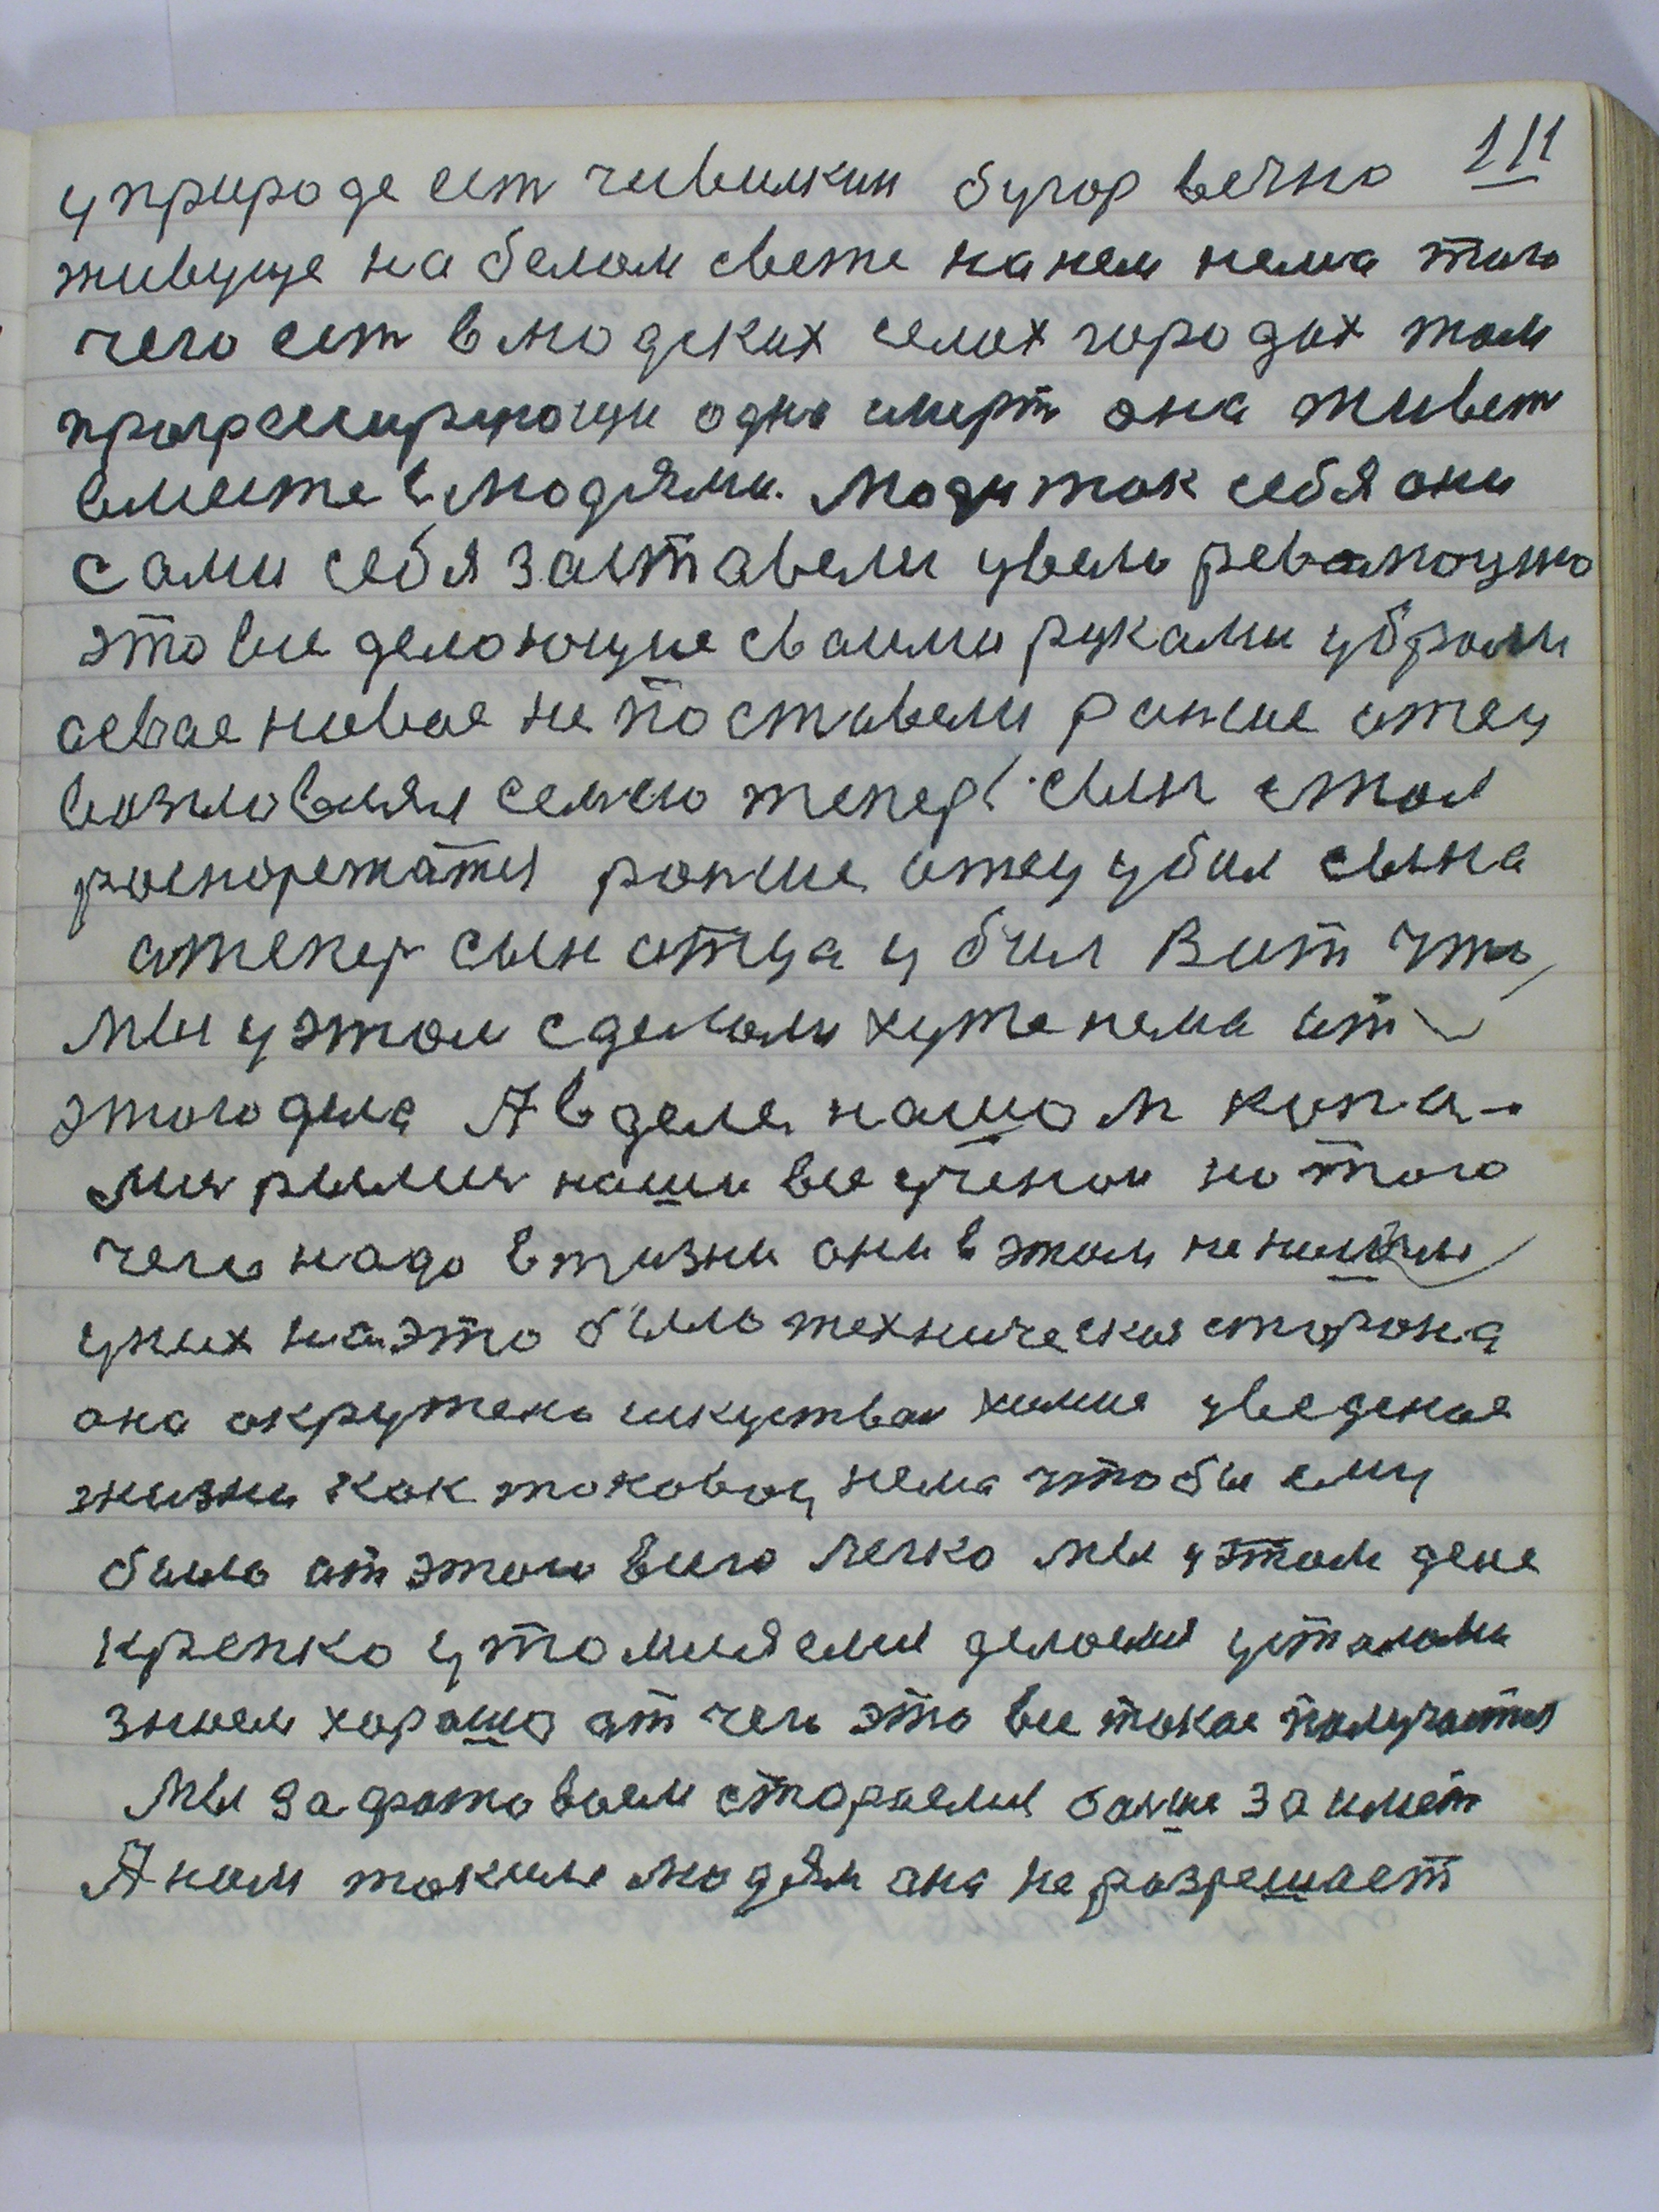 111
уприроде ест чивилкин бугор вечно
живуще на белом свете нанем нема того
чего ест влюдских селах городах там
програсиирующи одна смерт она живет
вместе влюдями. Люди так себя они
сами себя заставели увели революцию
это все делающие своими руками убрали
новае непоставели ранше отец
возгловлял семю теперь сын стал
распорежатся ранше отец убил сына
атепер сын отца убил Вот что
мы уэтом сделоли хуже нема от
этого дела А вделе нашом капа-
лись рылись наши все ученаи но того
чего надо вжизни они вэтом ненашли
уних на это была техническая сторона
она окружена искуством химие уведение
жизни как токовой нема чтобы ему
было от этого всего легко мы уэтом деле
крепко утомляемся делоемся усталоми
знаем харашо от чего это все такое получается
Мы заготовоем стораемся балше заимет
А ном токим людям она неразрешает